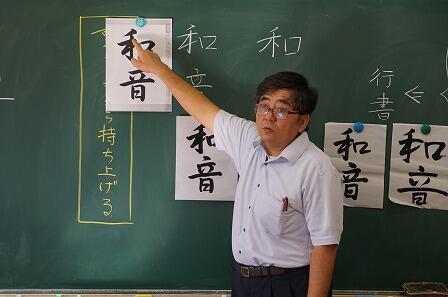 和音
持ち上げる
和
音
和
和音
行書
←
←
和音
和音